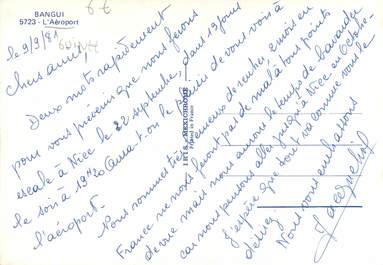 BANGUI
5723 - L'Aéroport
6 €
le 9/9/81
Chers amis,
Deux mots rapidement
pour vous prévenir que nous ferons
escale à Nice le 22 septembre, dans 13 jours
le soir à 19H20. Aura-t-on le plaisir de vous voir à
l'aéroport.
Nous sommes très heureux de rentrer ennuis en
France ne nous feront pas de mal à tous points
de vue mais nous aurons le temps de
car nous pensons aller jusqu'à Nice en Octobre
J'espère que tout va comme vous le
désirez
Nous vous embrassons
IRIS - MEXICHROME
Printed in France